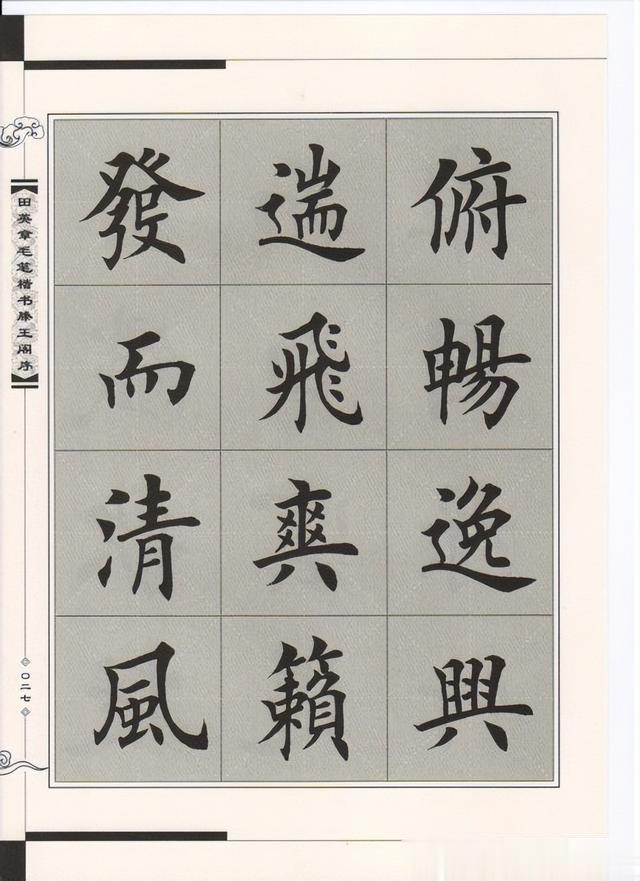 俯暢逸興
遄飛爽籟
發而清風
田英章毛笔楷书滕王阁序
〇二七